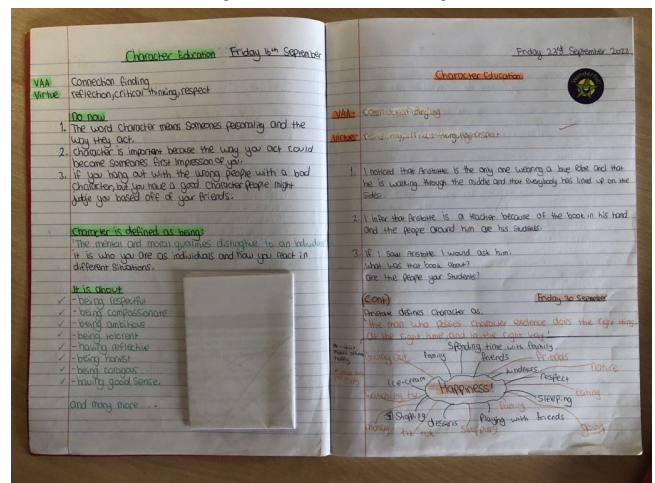 Character Education Friday 16th September
VAA Connection finding
Virtue reflection, critical thinking, respect
Do now
1. The word character means someones personality and the
way they act.
2. Character is important because the way you act could
become someones first impression of you.
3. if you hang out with the wrong people with a bad
character, but you have a good character people might
judge you based off of your friends.
Character is defined as being:
'The mental and moral qualities distinctive to an individual'
It is who you are as individuals and how you react in
different situations.
It is about
- being respectful
- being compassionate
- being ambitious
- being tolerent
- having reflective
- being honest
- being coragous
- having good sense.
and many more ...
Friday 23rd September 2022
Character Education
VAA- Connection finding
Virtue- critical thinking, respect
1. I noticed that Aristotle is the only one wearing a blue robe and that
he is walking through the middle and that everybody has lined up on the
sides.
2. I infer that Aristotle is a teacher because of the book in his hand
and the people around him are his students.
3. If I saw Aristotle I would ask him.
What was that book about?
are the people your students?
(Cont) Friday 30 September
Aristotle defines character as.
'the man who posses character exelence does the right thing,
at the right time and in the right way.'
Spending time with family
Going out
family
friends
Friends
nature
kindness
respect
ice-cream
Happiness!
watching tv
sleeping
eating
family
Shopping
desserts
Playing with friends
money
Shopping
going